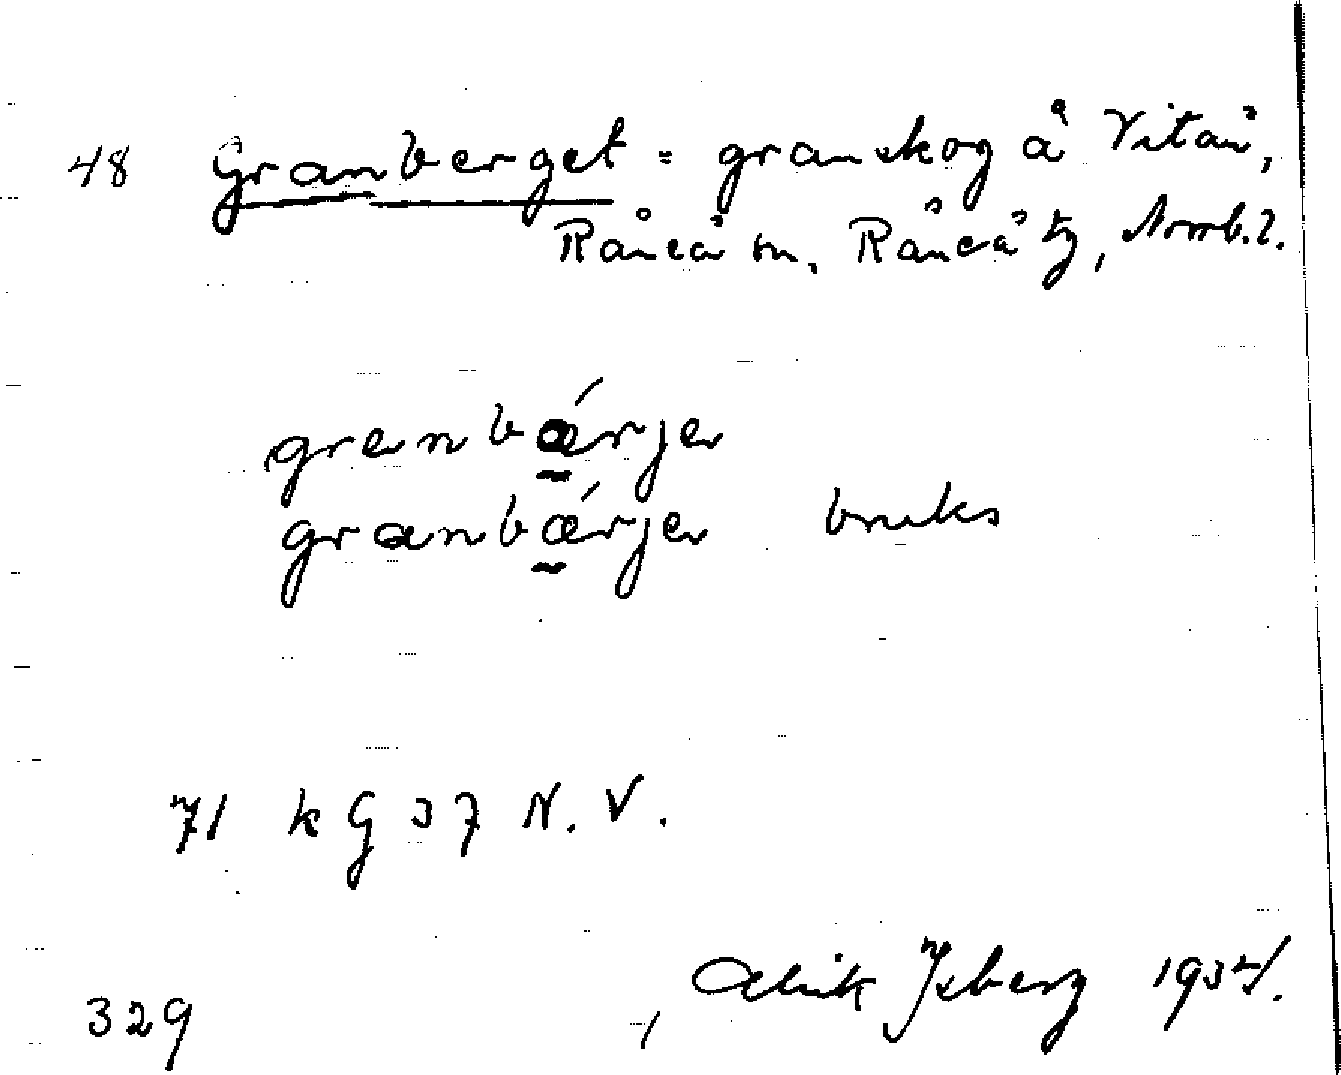 48 Granberget = granskog å Vitån,
Råneå sn, Råneå tg, Nrrb.l.
granbǽrjer
granbǽrjer bruks
71 k G 37 N. V.
329 Alrik Ysberg 1934.